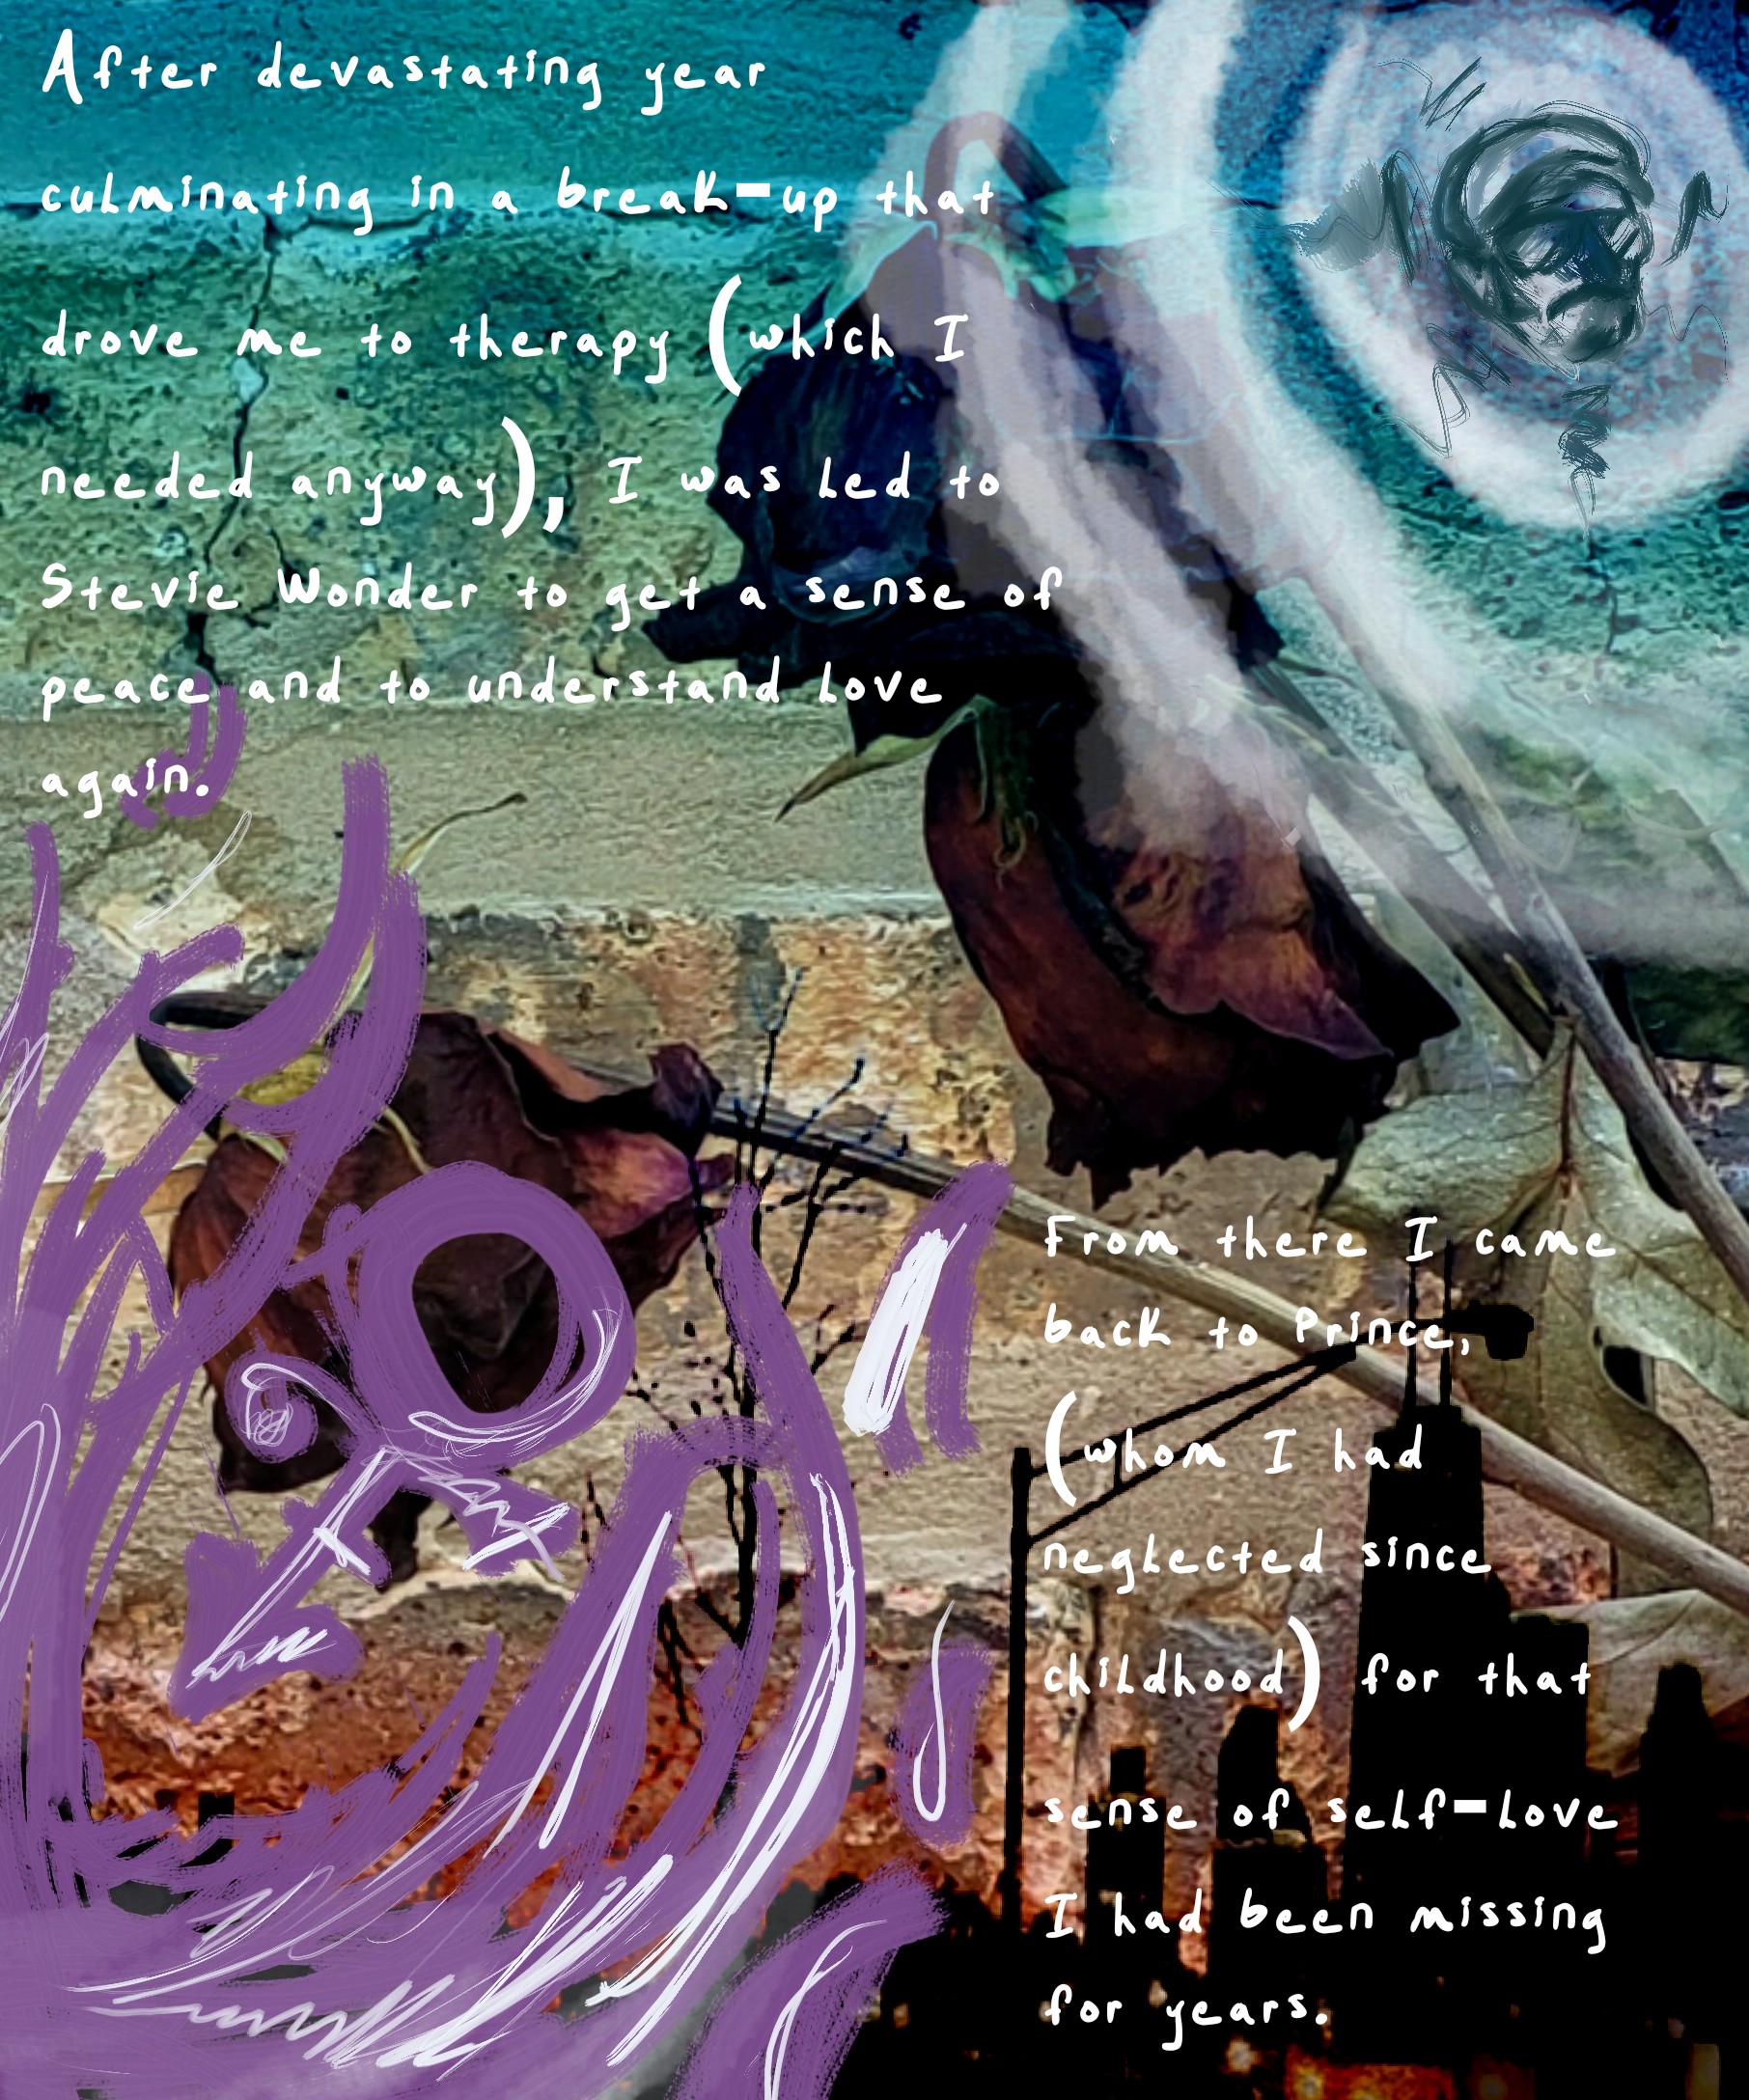 After devastating year
culminating in a break-up that
drove me to therapy (which I
needed anyway), I was led to
Stevie Wonder to get a sense of
peace and to understand love
again.
From there I came
back to Prince,
(whom I had
neglected since
childhood) for that
sense of self-love
I had been missing
for years.